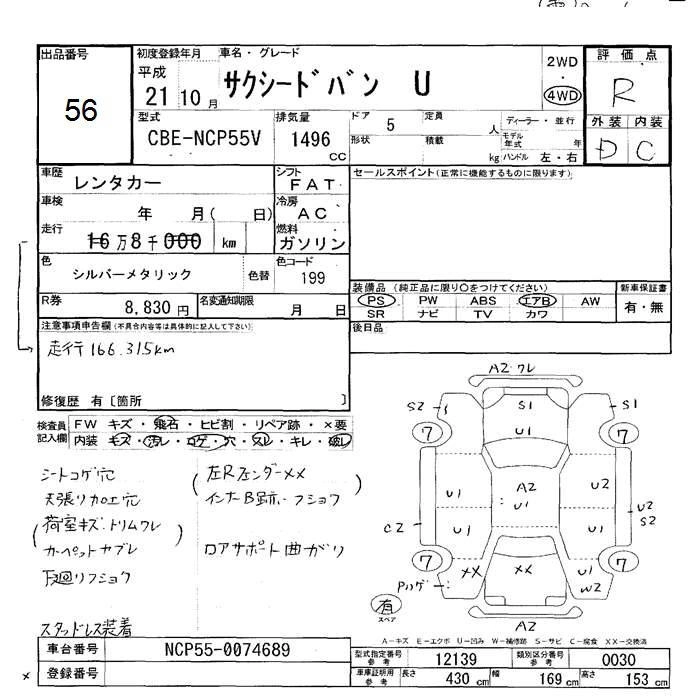 出品番号
56
初度登録年月
平成
21 10 月
車名・グレード
サクシードバン U
2WD
・
4WD
評価点
R
外装 内装
D C
型式
CBE-NCP55V
排気量
1496
CC
ドア 5
定員 人
形状
積載 kg
ディーラー・並行
モデル年式 年
ハンドル 左・右
車歴
レンタカー
シフト
FAT
車検
年 月( 日)
冷房
AC
走行
16 万 8 千 000 km
燃料
ガソリン
色
シルバーメタリック
色替
色コード
199
R券
8,830 円
名変通知期限
月 日
セールスポイント(正常に機能するものに限ります)
装備品 (純正品に限り○をつけてください)
PS PW ABS エアB AW
SR ナビ TV カワ
新車保証書
有・無
後日品
注意事項申告欄(不具合内容等は具体的に記入して下さい)
走行166.315km
修復歴 有〔箇所 〕
検査員記入欄
FW キズ・飛石・ヒビ割・リペア跡・×要
内装 キズ・汚レ・コゲ・穴・スレ・キレ・破レ
シートコゲ穴
天張リ加工穴
(荷室キズ.トリムワレ
カーペットカブレ)
下廻リフショク
スタッドレス装着
(左Rフェンダー××
インナーB跡.フショク)
ロアサポート曲ガリ
A2 ワレ
S2
S1
S1
U1
7
7
U1
A2
U1
U2
C2
U1
U1
U2
S2
7
7
××
××
U1
W2
Pハゲ
有
スペア
A2
A-キズ E-エクボ U-凹み W-補修跡 S-サビ C-腐食 XX-交換済
車台番号
NCP55-0074689
登録番号
×
型式指定番号
参考
12139
類別区分番号
参考
0030
車庫証明用
参考
長さ 430 cm
幅 169 cm
高さ 153 cm